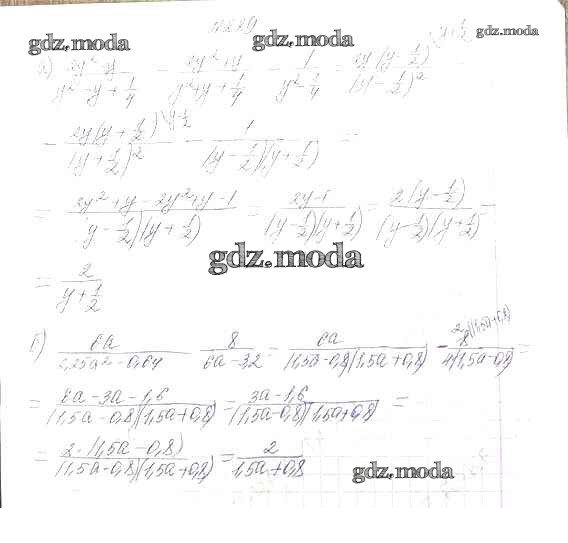 gdz.moda gdz.moda gdz.moda
а) (2y² - y)/(y² - y + 1/4) - (2y² + y)/(y² + y + 1/4) - 1/(y² - 1/4) = 2y(y - 1/2)/(y - 1/2)² \y + 1/2
- 2y(y + 1/2)/(y + 1/2)² \y - 1/2 - 1/((y - 1/2)(y + 1/2)) =
= (2y² + y - 2y² + y - 1)/((y - 1/2)(y + 1/2)) = (2y - 1)/((y - 1/2)(y + 1/2)) = 2(y - 1/2)/((y - 1/2)(y + 1/2)) =
gdz.moda
= 2/(y + 1/2)
б) 6a/(2,25a² - 0,64) - 8/(6a - 3,2) = 6a/((1,5a - 0,8)(1,5a + 0,8)) - 8/(4(1,5a - 0,8)) 2 \(1,5a + 0,8) =
= (6a - 3a - 1,6)/((1,5a - 0,8)(1,5a + 0,8)) = (3a - 1,6)/((1,5a - 0,8)(1,5a + 0,8)) =
= 2·(1,5a - 0,8)/((1,5a - 0,8)(1,5a + 0,8)) = 2/(1,5a + 0,8)
gdz.moda